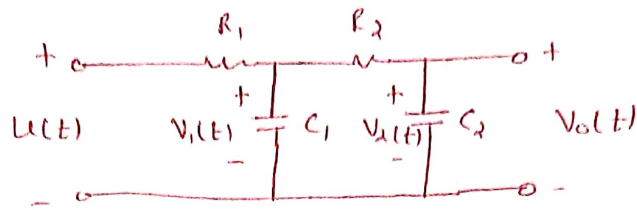 R₁ R₂
+ +
+ +
u(t) V₁(t) C₁ V₂(t) C₂ V₀(t)
- -
- -